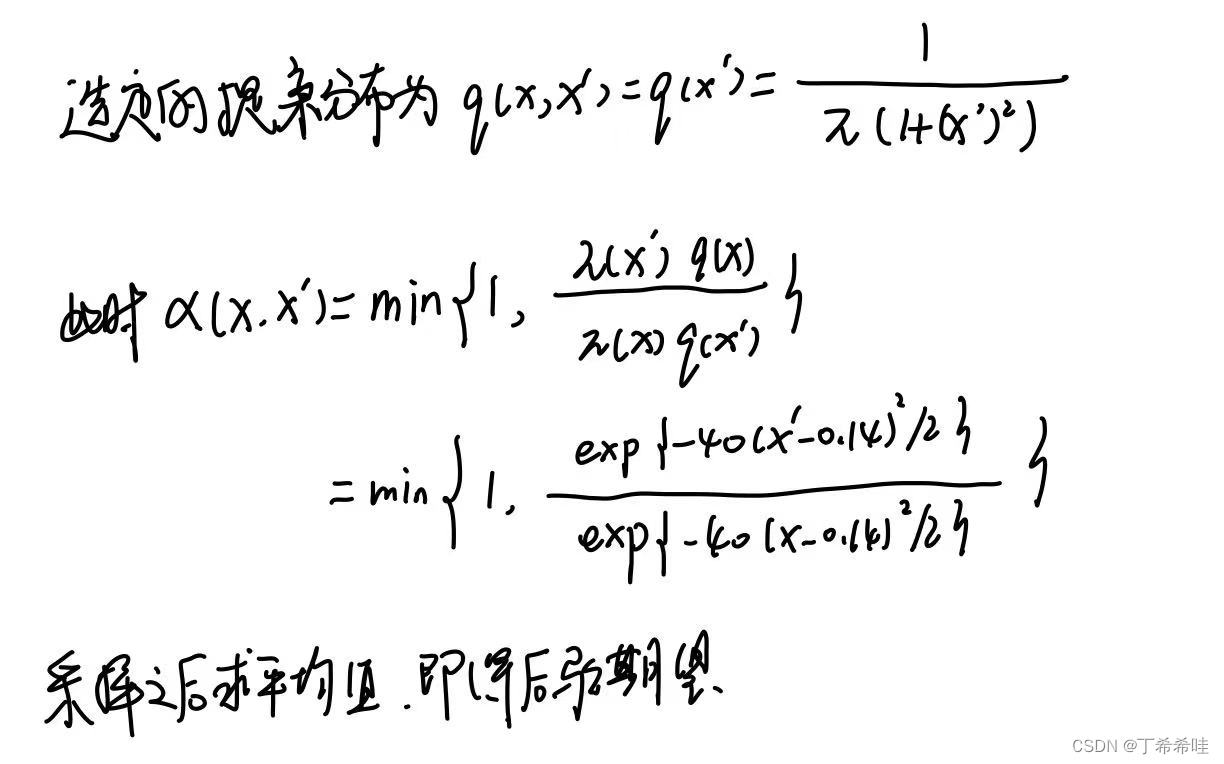 选定的提案分布为 q(x,x')=q(x')= \frac{1}{π(1+(x')²)}
此时 α(x,x')=min{1, \frac{π(x') q(x)}{π(x) q(x')}}
=min{1, \frac{exp{-40(x'-0.14)²/2}}{exp{-40(x-0.14)²/2}}}
采样之后求平均值.即得后验期望.
CSDN @丁希希哇